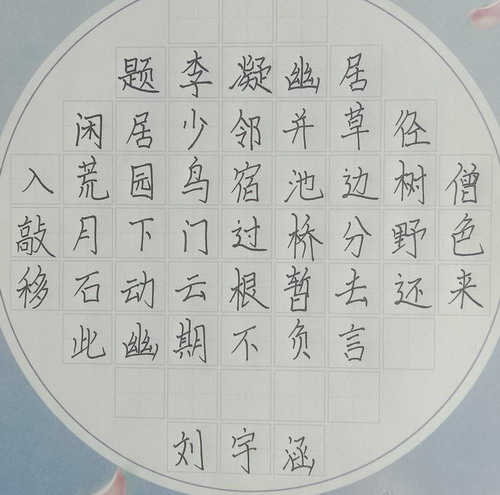 题李凝幽居
闲居少邻并草径
入荒园鸟宿池边树僧
敲月下门过桥分野色
移石动云根暂去还来
此幽期不负言
刘宇涵